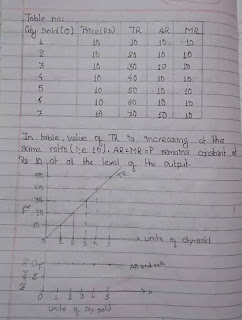 Table no:
Qty Sold(Q) Price(Rs) TR AR MR
1 10 10 10 10
2 10 20 10 10
3 10 30 10 10
4 10 40 10 10
5 10 50 10 10
6 10 60 10 10
7 10 70 10 10
In table value of TR is increasing at the
same ratio (i.e 10), AR=MR=P remains constant at
Rs 10 at all the level of the output.
TR
units of Qty.sold
AR and MR
0 1 2 3 4 5
units of Qty.sold